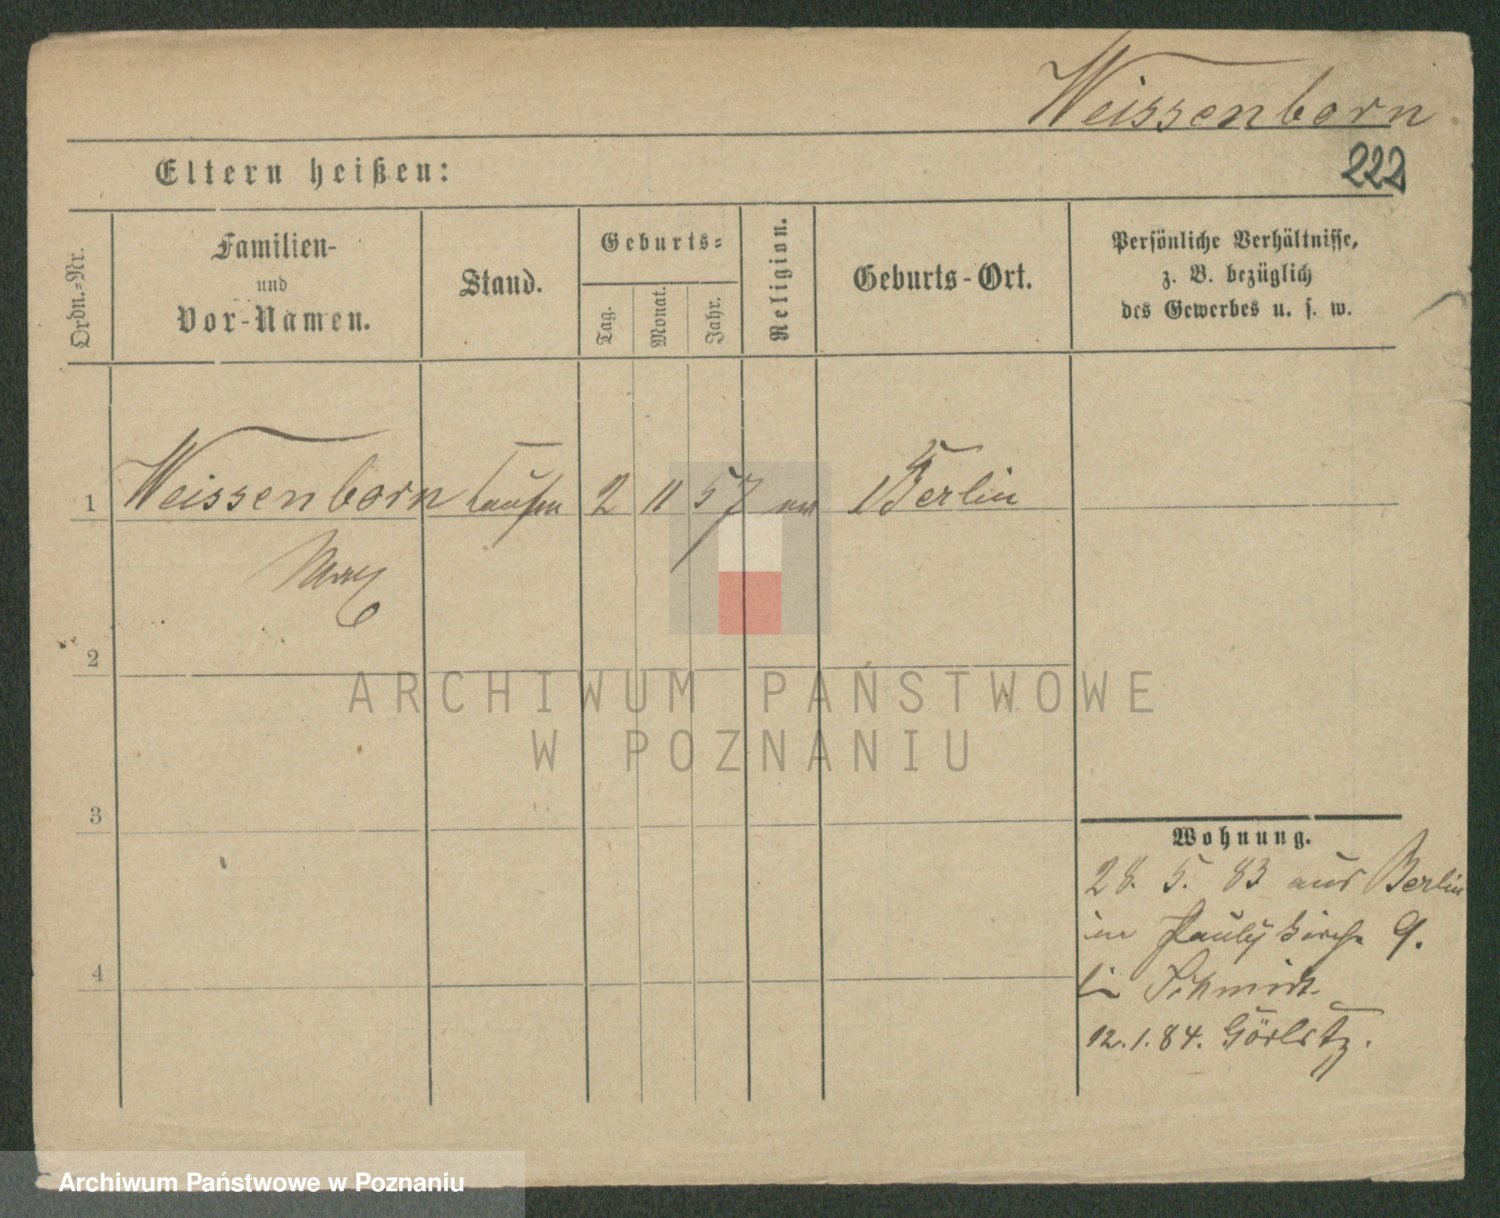 Weissenborn
222
Eltern heißen:
Ordn.=Nr.
Familien-
und
Vor-Namen.
Stand.
Geburts=
Tag.
Monat.
Jahr.
Religion.
Geburts-Ort.
Persönliche Verhältnisse,
z. B. bezüglich
des Gewerbes u. s. w.
1 Weissenborn 2 11 57 Berlin
Max
2
3
4
ARCHIWUM PAŃSTWOWE
W POZNANIU
Wohnung.
28. 5. 83 aus Berlin
Paulikirch 9.
Schmidt
12.1.84. Görlitz.
Archiwum Państwowe w Poznaniu